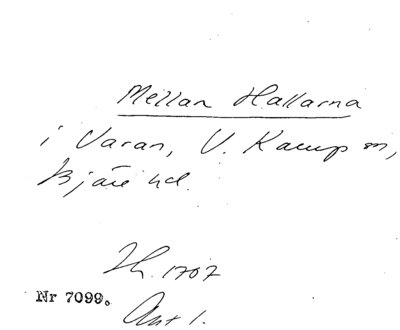 Mellan Hallarna
i Varan, V. Karup sn,
Bjäre hd.
Lh. 1707
Nr 7099.
Ant 1.